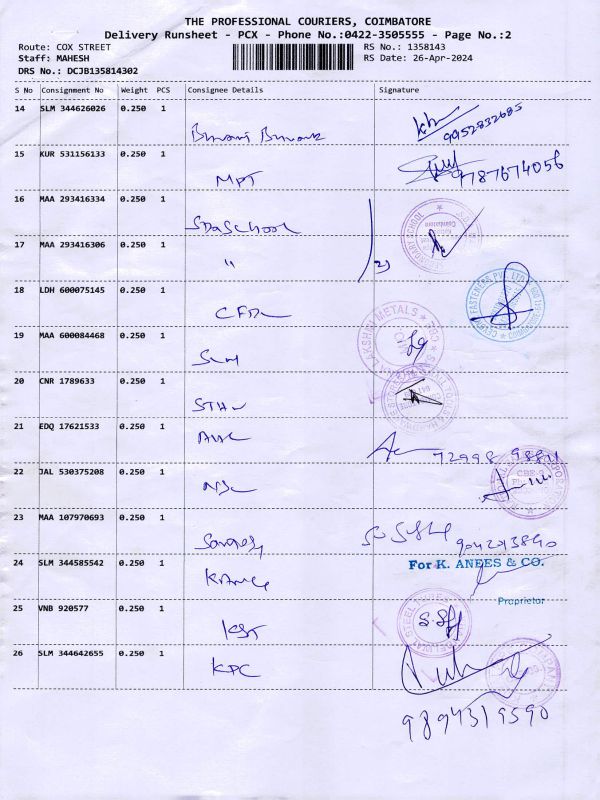 THE PROFESSIONAL COURIERS, COIMBATORE
Delivery Runsheet - PCX - Phone No.:0422-3505555 - Page No.:2
Route: COX STREET RS No.: 1358143
Staff: MAHESH RS Date: 26-Apr-2024
DRS No.: DCJB135814302
S No Consignment No Weight PCS Consignee Details Signature
14 SLM 344626026 0.250 1
9952832685
15 KUR 531156133 0.250 1
MPT 9787674056
16 MAA 293416334 0.250 1
SDA School
17 MAA 293416306 0.250 1
"
18 LDH 600075145 0.250 1
19 MAA 600084468 0.250 1
LAKSHMI METALS
20 CNR 1789633 0.250 1
21 EDQ 17621533 0.250 1
22 JAL 530375208 0.250 1
23 MAA 107970693 0.250 1
24 SLM 344585542 0.250 1
For K. ANEES & CO.
Proprietor
25 VNB 920577 0.250 1
KST
26 SLM 344642655 0.250 1
KPC
9894319590